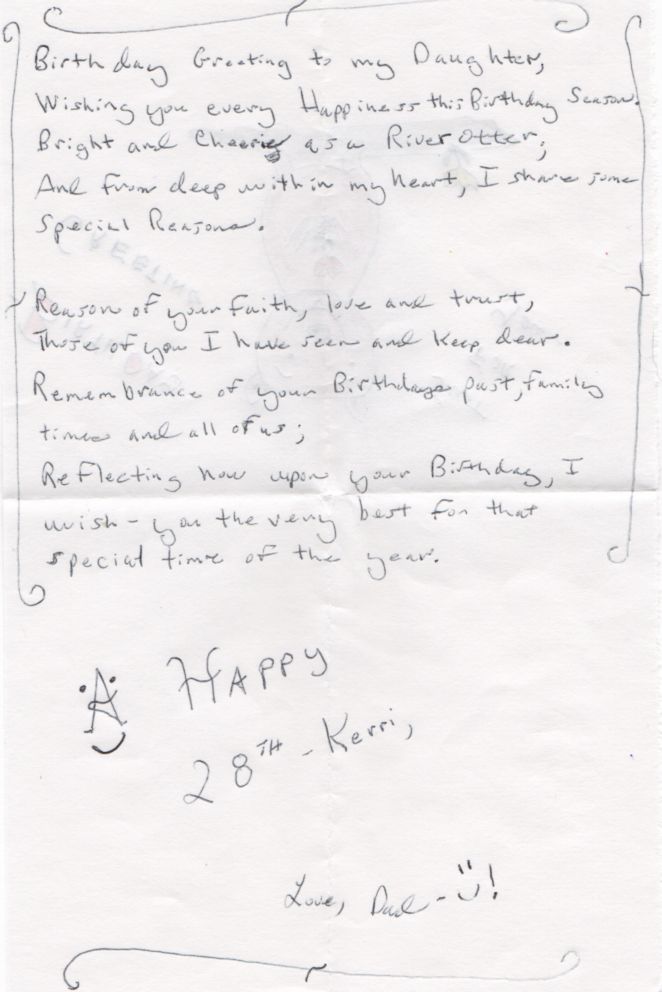 Birthday Greeting to my Daughter,
Wishing you every Happiness this Birthday Season.
Bright and Cheerie as a River Otter;
And from deep within my heart, I share some
Special Reasons.
Reason of your Faith, love and trust,
Those of you I have seen and keep dear.
Remembrance of your Birthdays past, family
times and all of us;
Reflecting now upon your Birthday, I
wish - you the very best for that
special time of the year.
A HAPPY
28TH - Kerri,
Love, Dad - !
GREETING